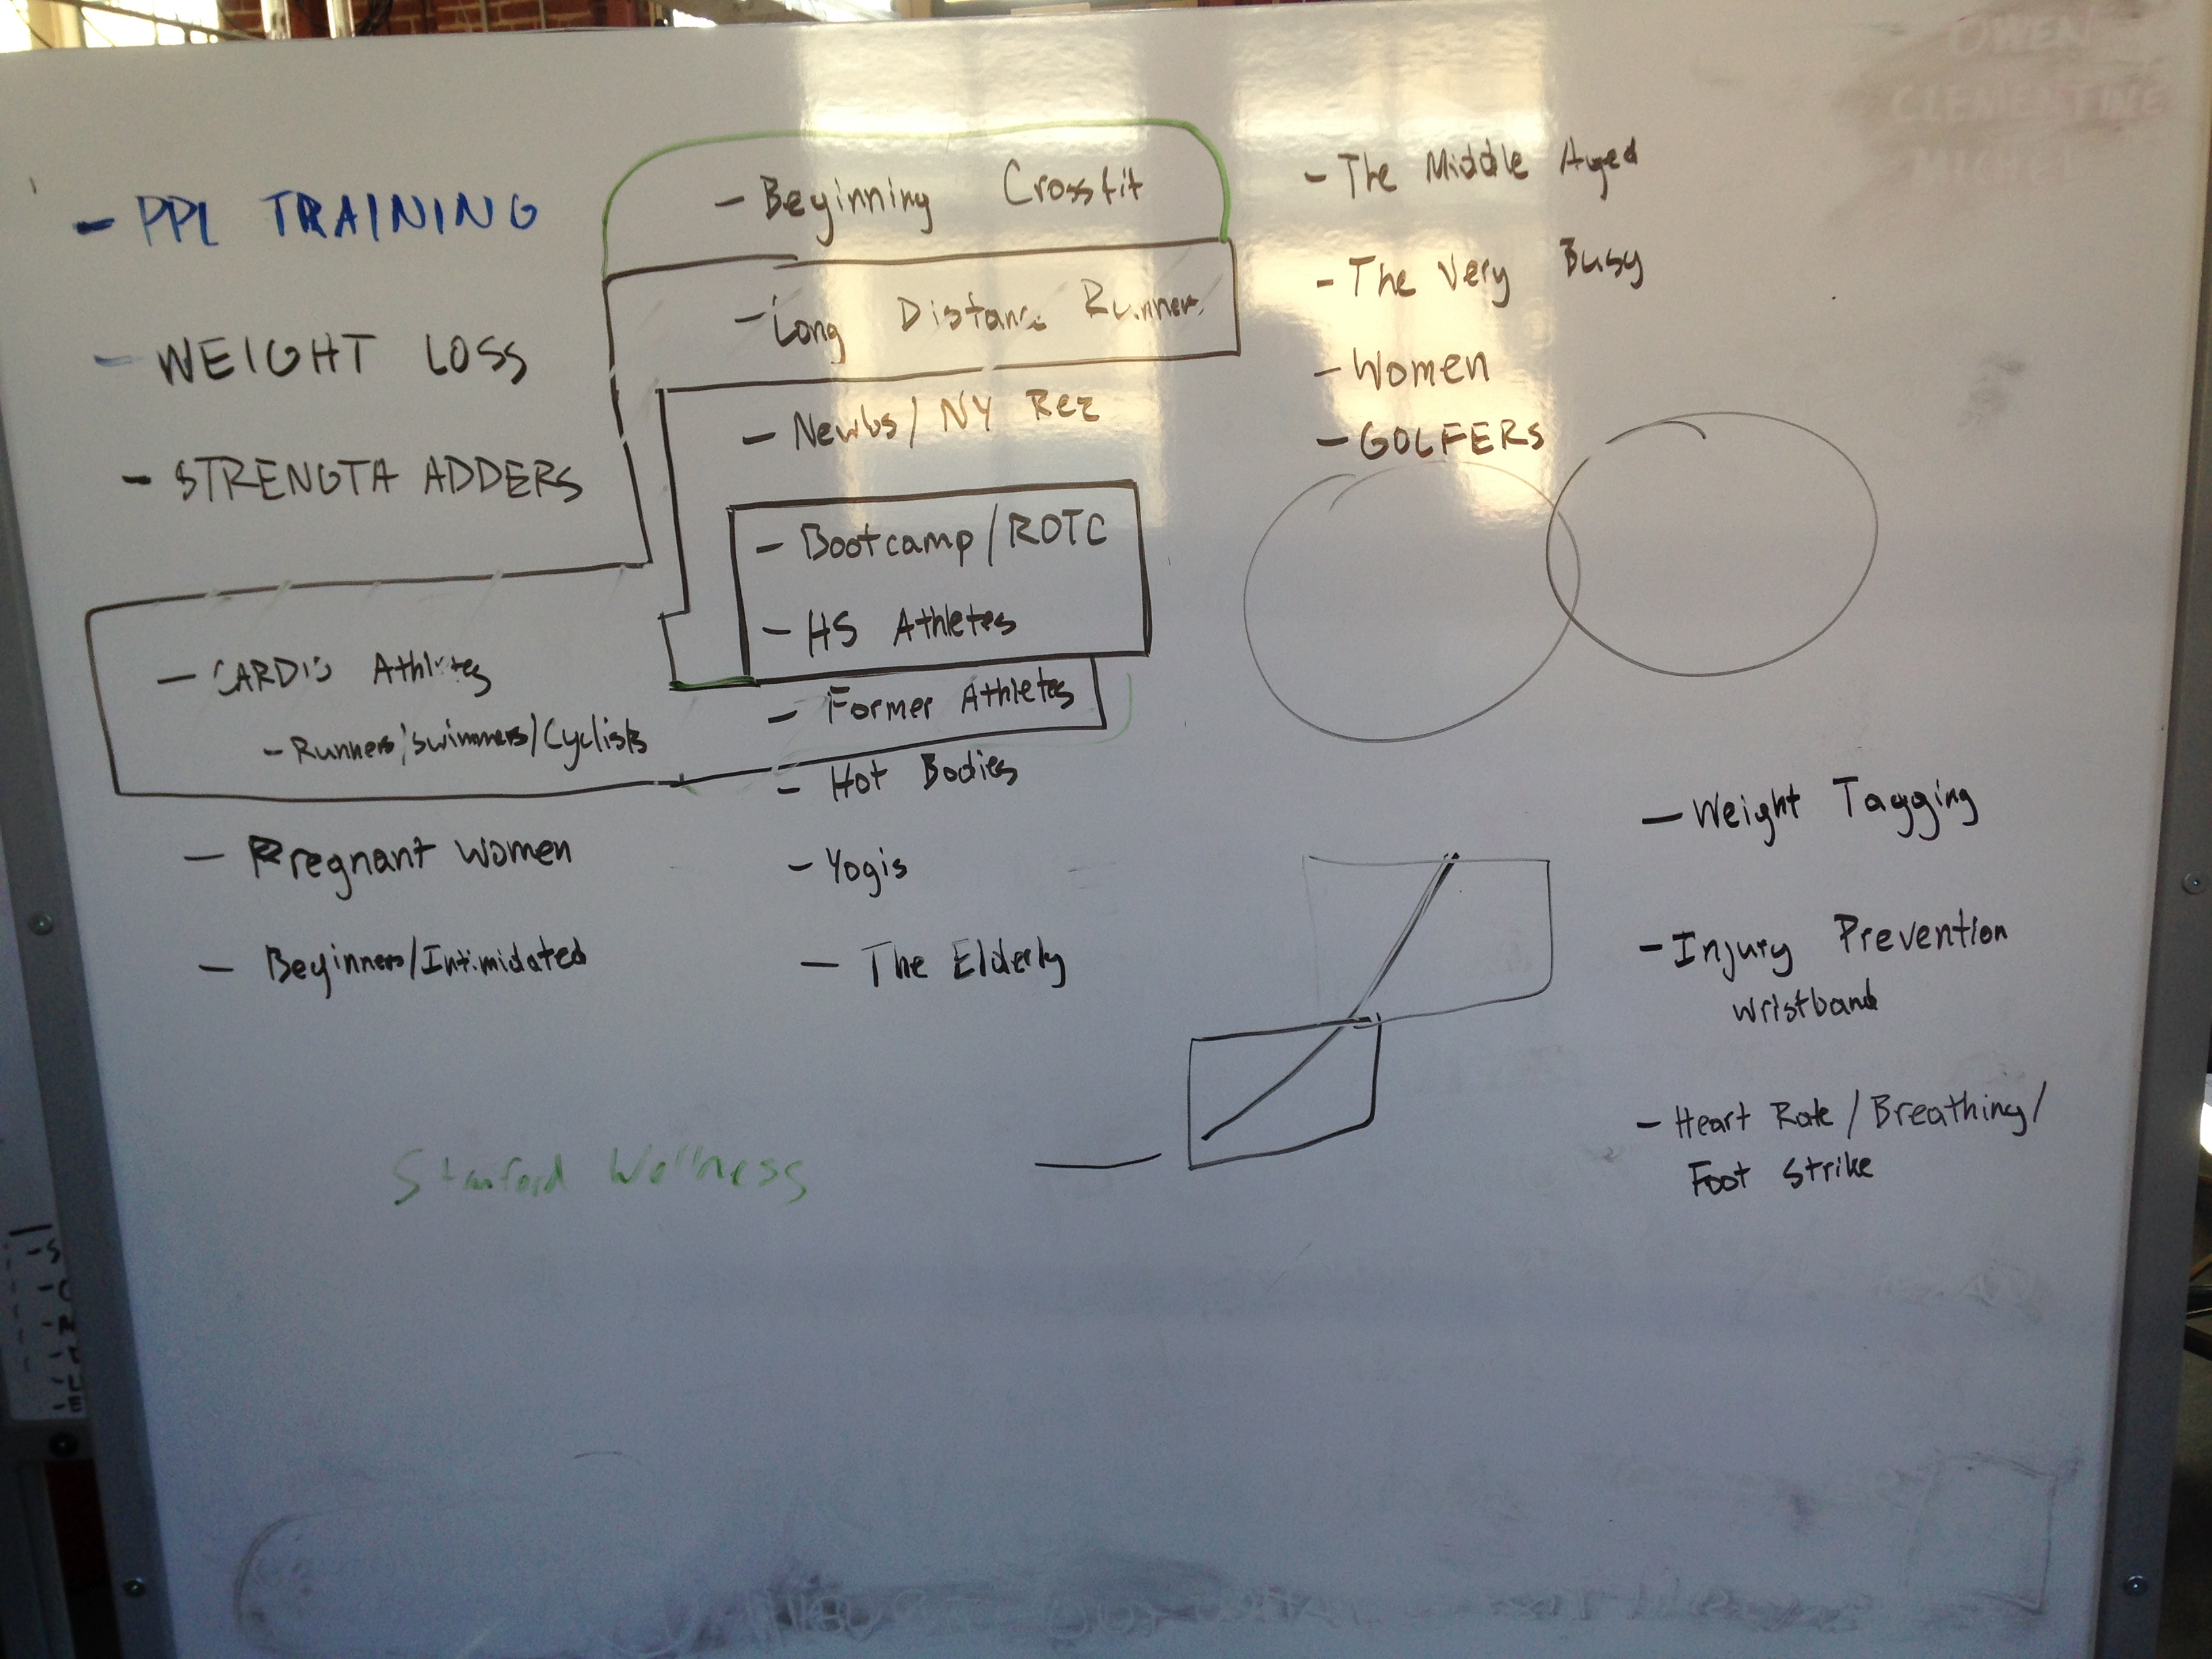 - PPL TRAINING
- WEIGHT LOSS
- STRENGTH ADDERS
- CARDIO Athletes
- Runners/Swimmers/Cyclists
- Pregnant Women
- Beginners/Intimidated
- Beginning Crossfit
- Long Distance Runners
- Newbs/ NY Rez
- Bootcamp/ROTC
- HS Athletes
- Former Athletes
- Hot Bodies
- Yogis
- The Elderly
- The Middle Aged
- The Very Busy
- Women
- GOLFERS
- Weight Tagging
- Injury Prevention
wristband
- Heart Rate / Breathing /
Foot Strike
Stanford Wellness
OWEN
CLEMENTINE